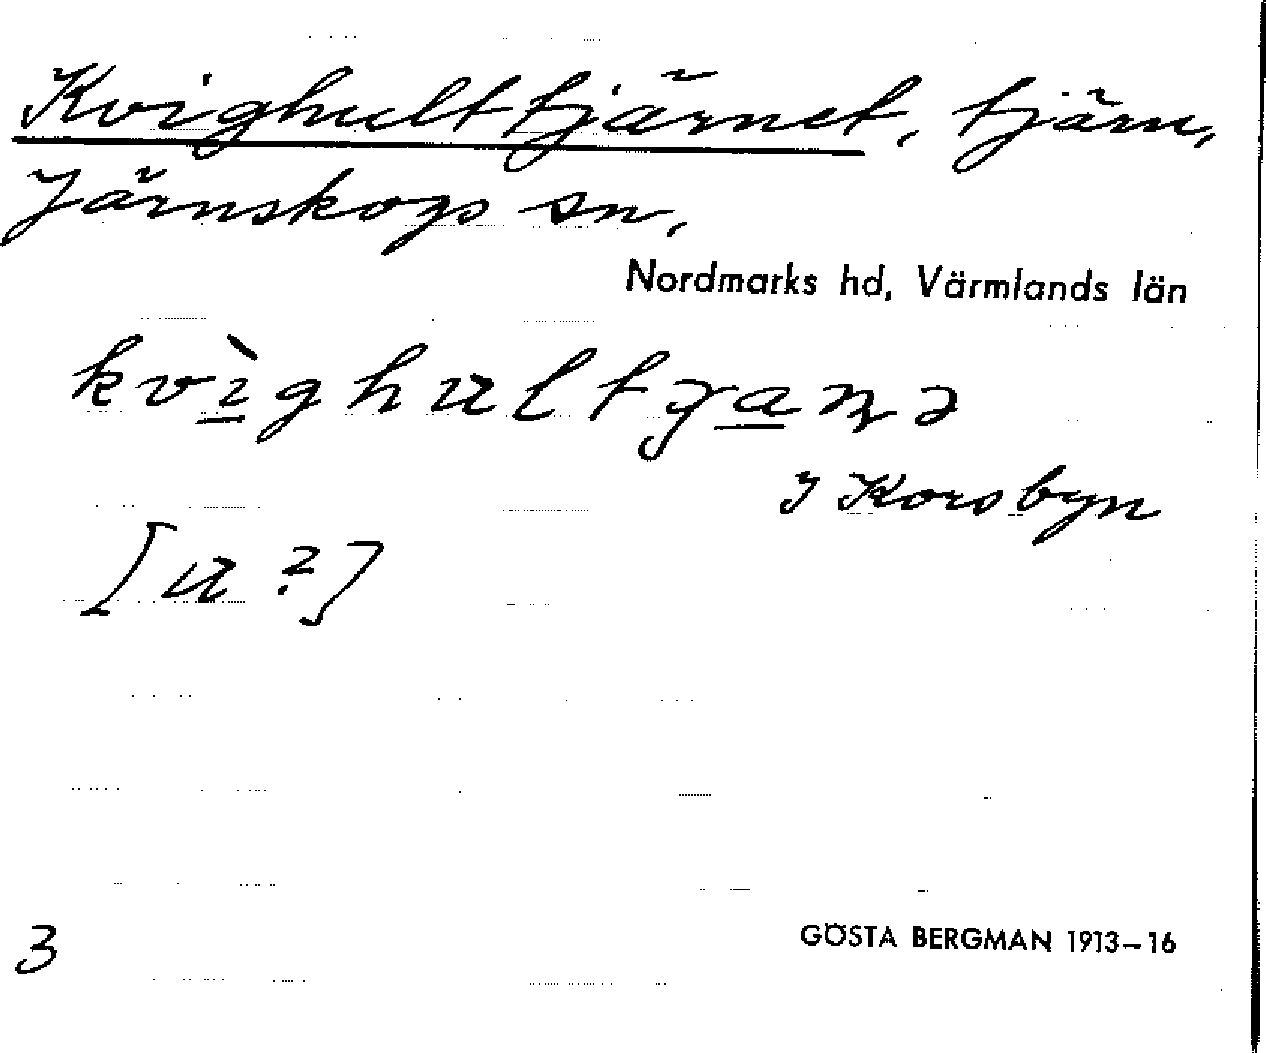 Kvighulttjärnet, tjärn,
Järnskogs sn,
Nordmarks hd, Värmlands län
I Korsbyn
[u ?]
3
GÖSTA BERGMAN 1913–16